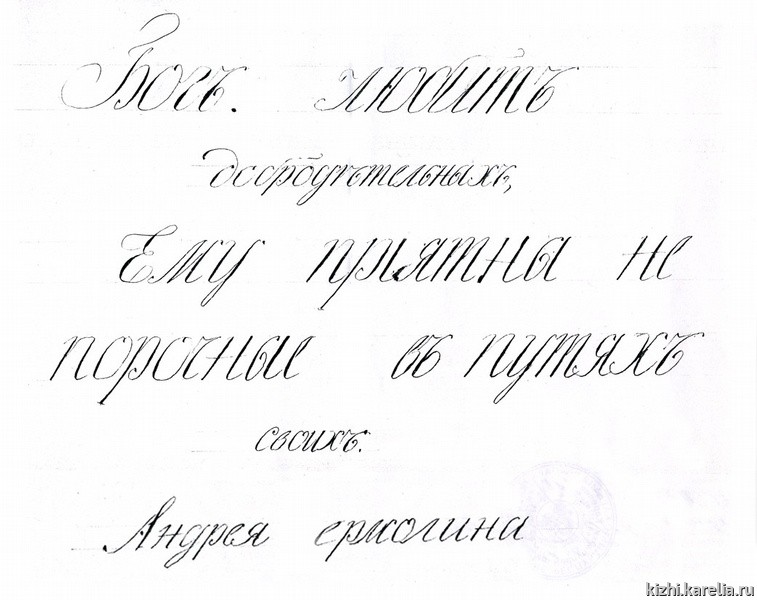 Богъ. любитъ
добродѣтельныхъ,
Ему приятны не
порочные въ путяхъ
своихъ.
Андрея ермолина
kizhi.karelia.ru